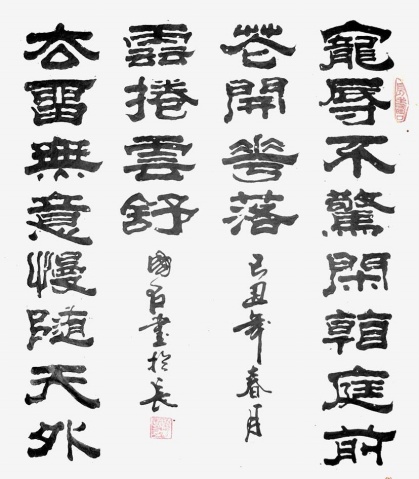 寵辱不驚閑看庭前
花開華落
己丑年春月
雲捲雲舒
國石書於長
去留無意慢隨天外